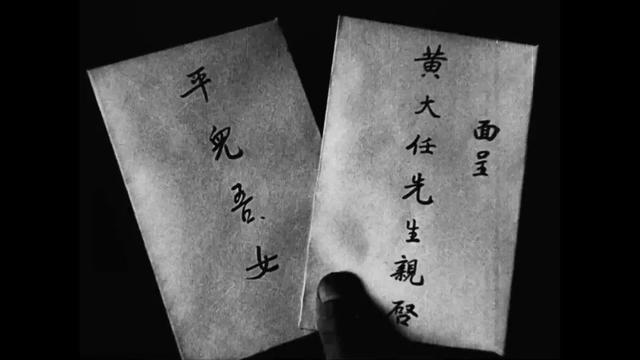 面呈
黄大任先生親啓
平兒吾女